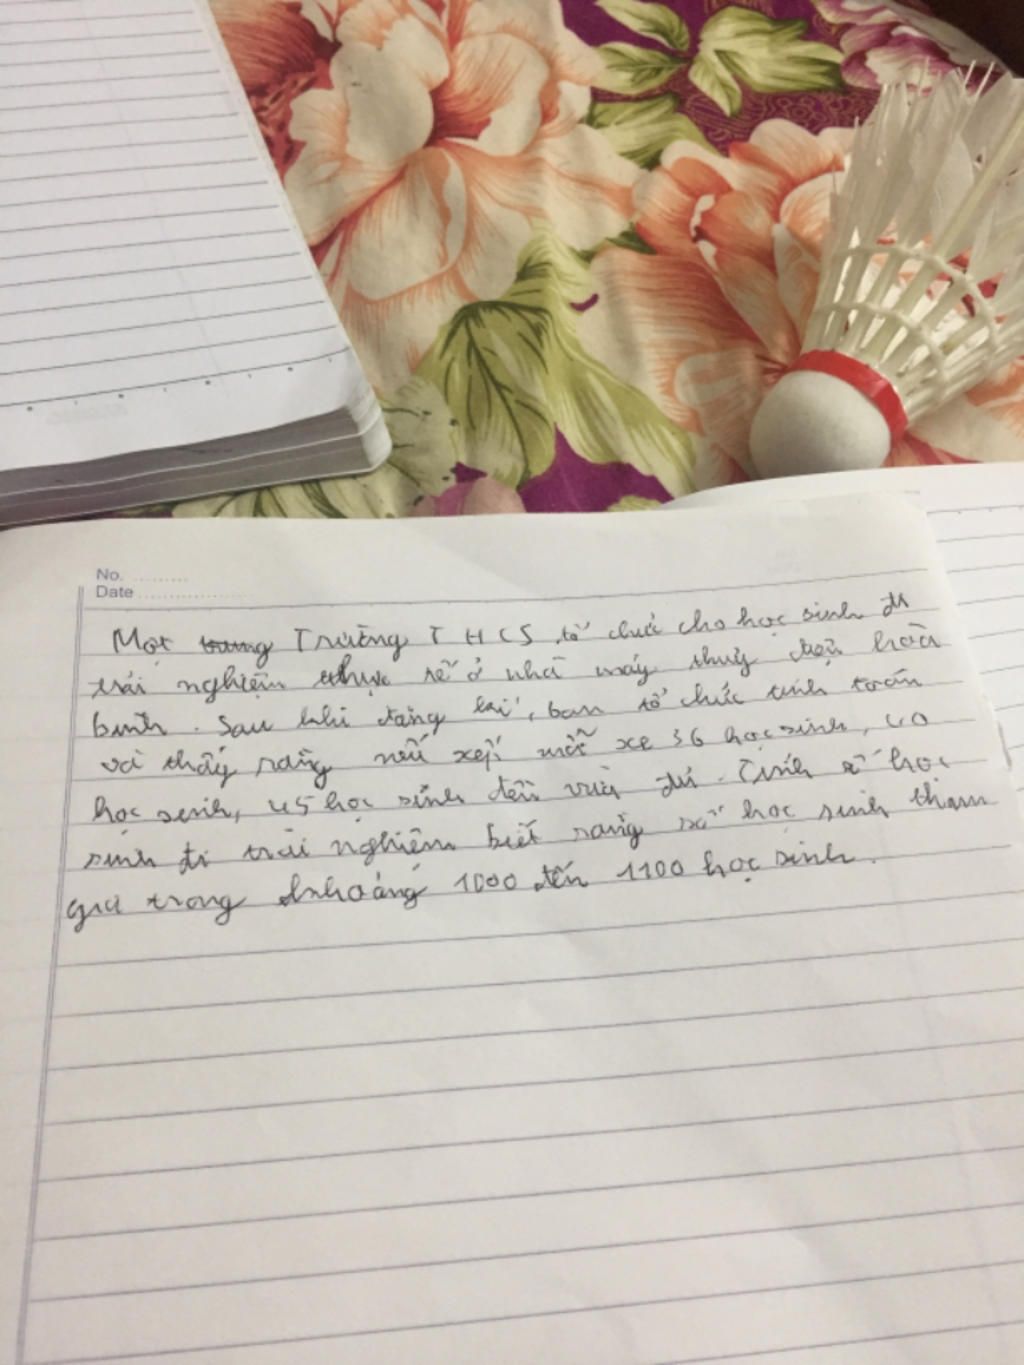 No. .........
Date ...................
Một trung Trường THCS tổ chức cho học sinh đi
trải nghiệm thực tế ở nhà máy thuỷ điện hoà
bình. Sau khi đăng kí, ban tổ chức tính toán
và thấy rằng nếu xếp mỗi xe 36 học sinh, 40
học sinh, 45 học sinh đều vừa đủ. Tính số học
sinh đi trải nghiệm biết rằng số học sinh tham
gia trong khoảng 1000 đến 1100 học sinh.